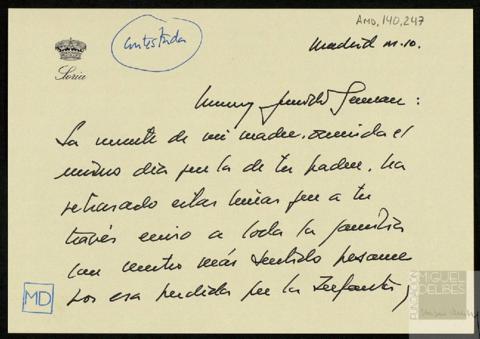 AMD, 140, 247
contestada
Soria
Madrid
Muy querido German:
La muerte de mi madre, ocurrida el
mismo dia que la de tu padre, ha
retrasado estas lineas que a tu
través envio a toda la familia
con nuestro más sentido pesame
por esa perdida que la Infanta y
MD
FUNDACIÓN
MIGUEL
DELIBES